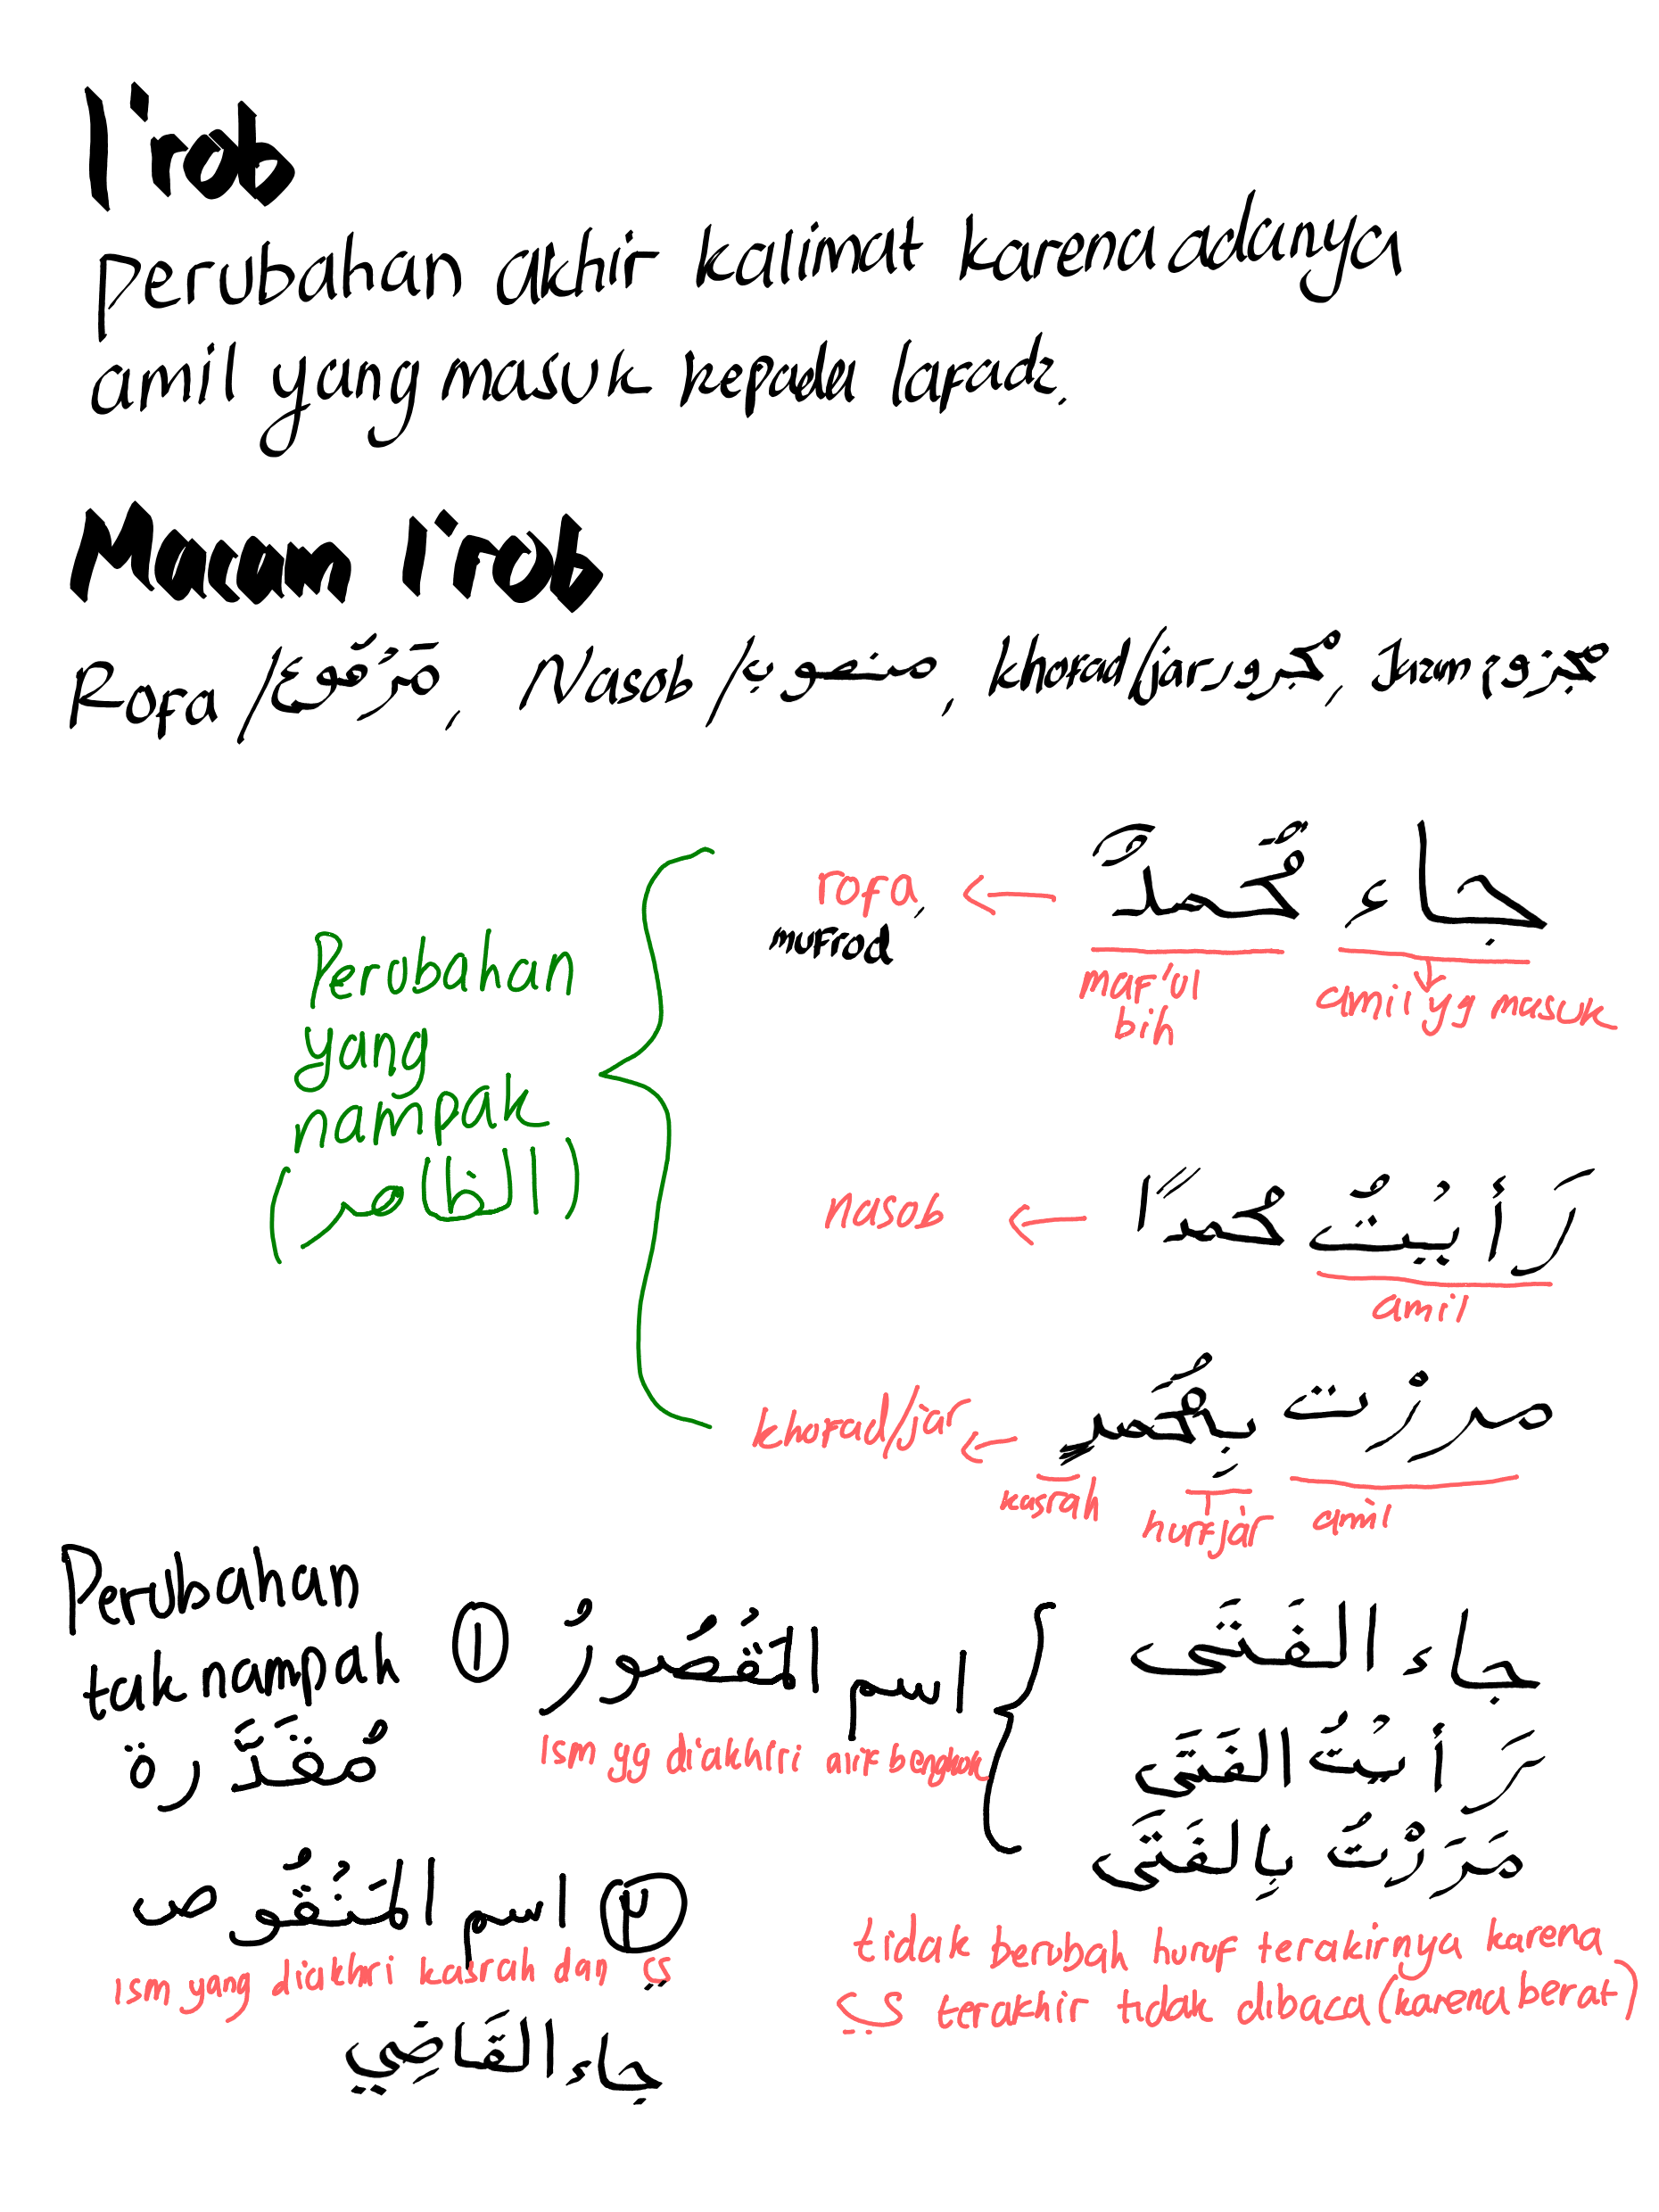 I'rob
perubahan akhir kalimat karena adanya
amil yang masuk kepada lafadz.
Macam I'rob
Rofa / مَرْفُوع, Nasob / منصوب, khofad/jar مجرور, Jazm مجزوم
جاء مُحمدٌ ← rofa,
mufrod
maf'ul bih
amil yg masuk
Perubahan
yang
nampak
(الظاهر)
رَأَيْتُ محمدًا ← nasob
amil
مررْت بِمُحَمدٍ ← khofad/jar
kasrah
hurf jar
amil
Perubahan
tak nampah
مُقَدَّرة
① اسم المَقْصُورُ
ism yg diakhiri alif bengkok
جاء الفَتَى
رَأَيْتُ الفَتَى
مَرَرْتُ بِالفَتَى
tidak berubah huruf terakirnya karena
ي terakhir tidak dibaca (karena berat)
٢ اسم المَنْقُوص
ism yang diakhiri kasrah dan ي
جاء القَاضِي